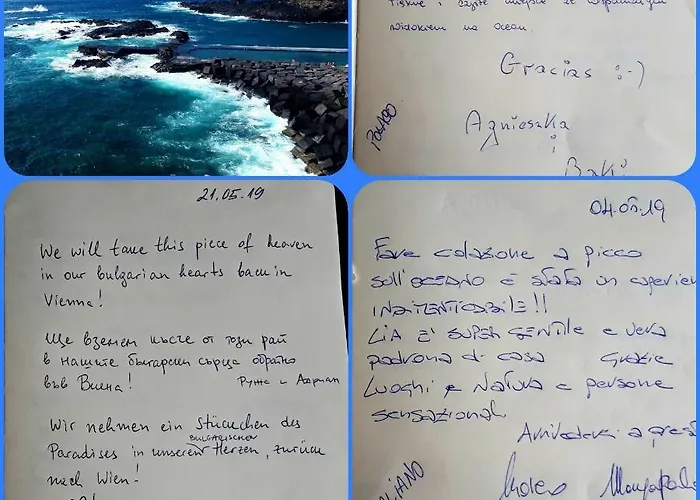 piękne i czyste miejsce ze wspaniałym
widokiem na ocean.
Gracias :-)
Agnieszka
i
POLACO
21.05.19
We will take this piece of heaven
in our bulgarian hearts back in
Vienna!
Ще вземем късче от този рай
в нашите български сърца обратно
във Виена!
Ружа и Адриан
Wir nehmen ein Stückchen des
BULGARISCHEN
Paradises in unseren Herzen, zurück
nach Wien!
04.05.19
Fare colazione a picco
sull'oceano è stata un esperien
INDIMENTICABILE!!
LIA E' SUPER GENTILE e vera
padrona di casa Grazie
Luoghi e Natura e persone
sensazionali
Arrivederci a prest